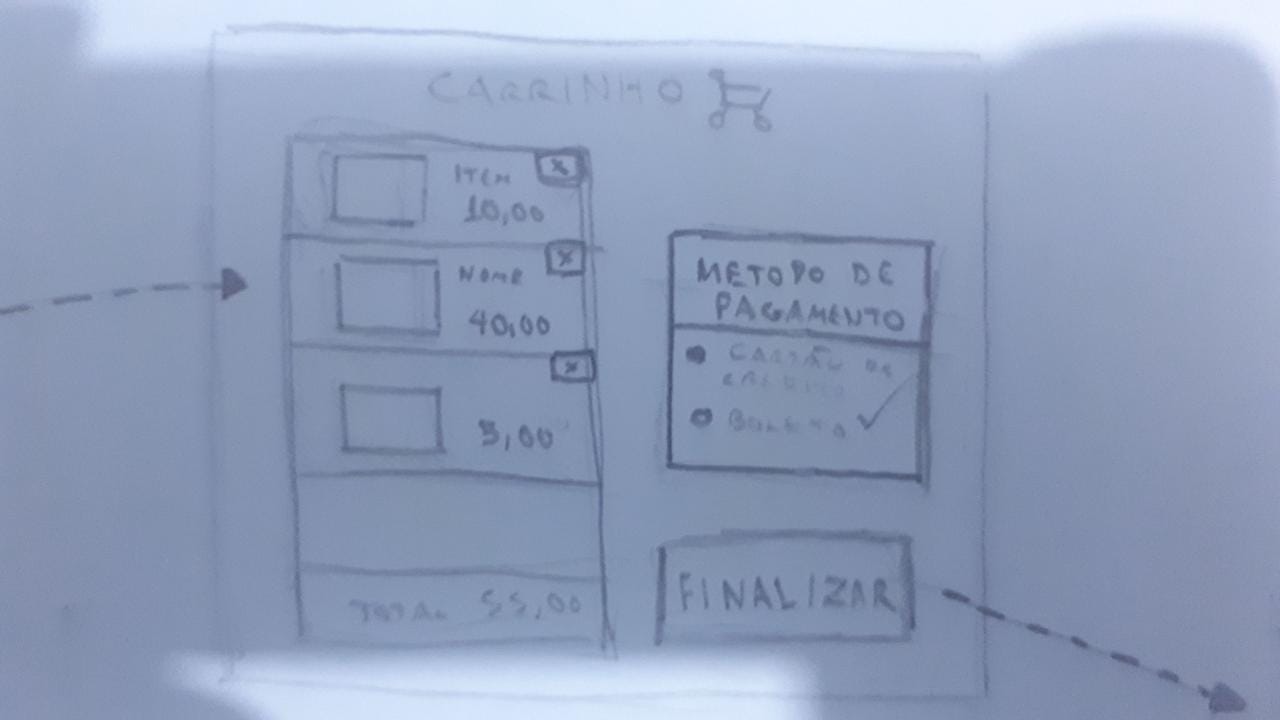 CARRINHO
X
ITEM
10,00
X
NOME
40,00
X
5,00
TOTAL 55,00
METODO DE
PAGAMENTO
CARTÃO DE
CREDITO
BOLETO
FINALIZAR